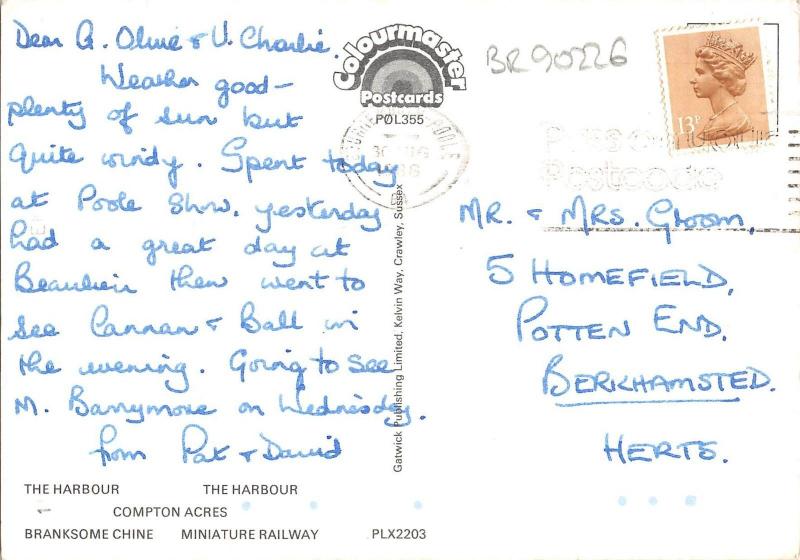 Dear A. Olive & U. Charlie.
Weather good –
plenty of sun but
quite windy. Spent today
at Poole Show, yesterday
had a great day at
Beaulieu then went to
see Cannan & Ball in
the evening. Going to see
M. Barrymore on Wednesday.
from Pat & David
THE HARBOUR THE HARBOUR
COMPTON ACRES
BRANKSOME CHINE MINIATURE RAILWAY PLX2203
Colourmaster
Postcards
PØL355
Gatwick Publishing Limited, Kelvin Way, Crawley, Sussex
BR90226
13P
Postcode
MR. & MRS. Groom,
5 HOMEFIELD,
POTTEN END,
BERKHAMSTED.
HERTS.